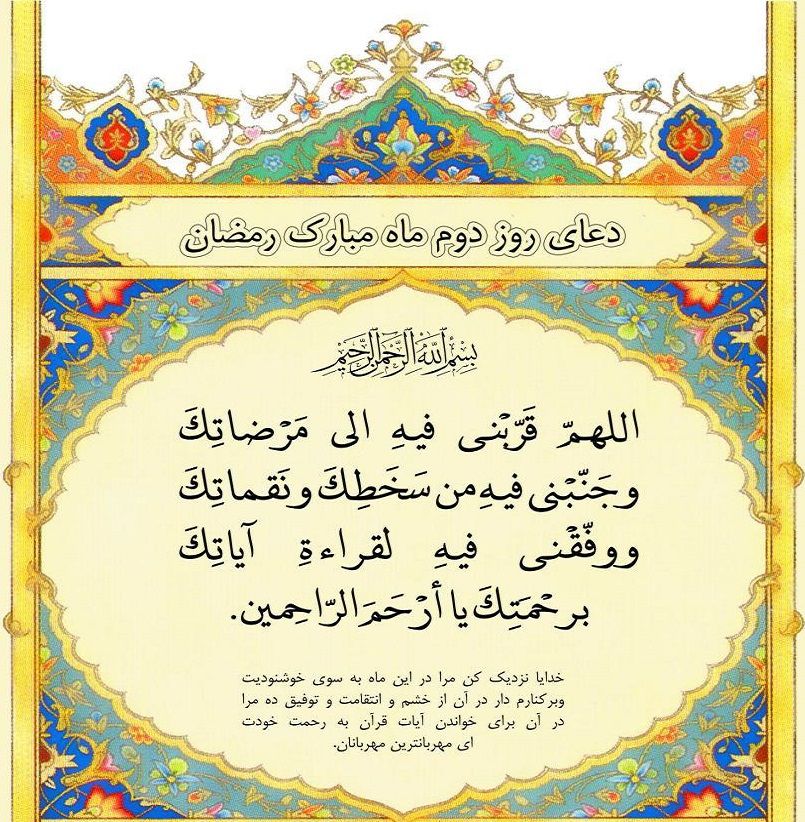 دعای روز دوم ماه مبارک رمضان
بِسْمِ اللهِ الرَّحْمنِ الرَّحيمِ
اللهمّ قَرّبْنی فیهِ الی مَرْضاتِكَ
وجَنّبْنی فیهِ من سَخَطِكَ ونَقماتِكَ
ووفّقْنی فیهِ لقراءةِ آیاتِكَ
برحْمَتِكَ یا أرْحَمَ الرّاحِمین.
خدایا نزدیک کن مرا در این ماه به سوی خوشنودیت
وبرکنارم دار در آن از خشم و انتقامت و توفیق ده مرا
در آن برای خواندن آیات قرآن به رحمت خودت
ای مهربانترین مهربانان.